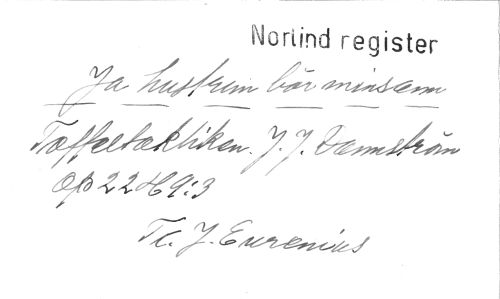 Norlind register
Ja hustrun bör minsann
Toffeltaktiken. J. J. Dannström
Op 22 H 9:3
Tl. J. Eurenius